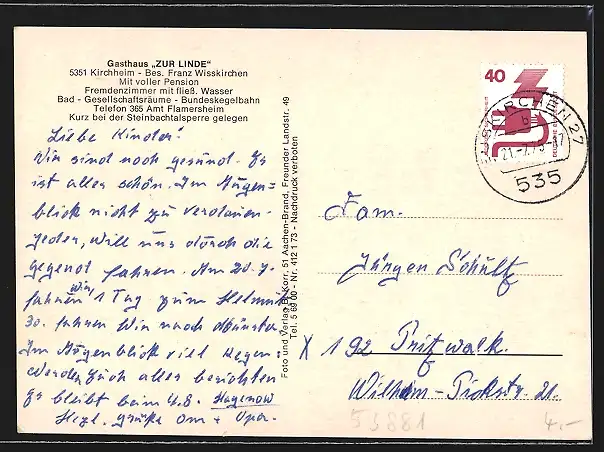 Gasthaus „ZUR LINDE"
5351 Kirchheim - Bes. Franz Wisskirchen
Mit voller Pension
Fremdenzimmer mit fließ. Wasser
Bad - Gesellschaftsräume - Bundeskegelbahn
Telefon 365 Amt Flamersheim
Kurz bei der Steinbachtalsperre gelegen
Liebe Kinder!
Wir sind noch gesund. Es
ist alles schön. Im Augen=
blick nicht zu verdauen.
Jeder, will uns durch die
gegend fahren. Am 20.7.
fahren wir 1 Tag zum Helmut
30. fahren wir nach Münster
Im Augenblick viel Regen.
Werden Euch alles berichten
Es bleibt beim 4.8. Hagenow
Herzl. grüße Om + Opa.
Foto und Verlag B. Korr, 51 Aachen-Brand, Freunder Landstr. 49
Tel. 5 69 00 - Nr. 412 1 73 - Nachdruck verboten
40
EUSKIRCHEN 27
b
535
Fam.
Jürgen Schultz
X 192 Pritzwalk.
Wilhelm-Pieckstr. 21.
53881
4.-